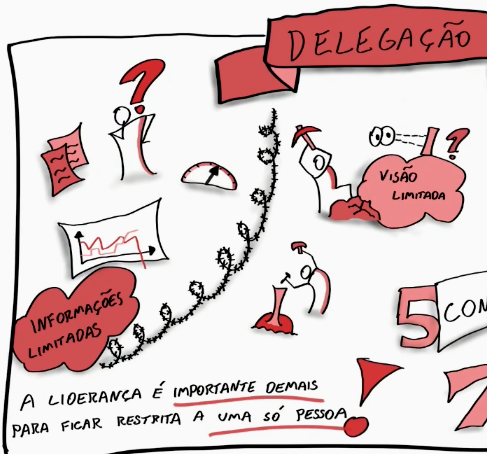 DELEGAÇÃO
?
?
VISÃO
LIMITADA
INFORMAÇÕES
LIMITADAS
5 CON
7
A LIDERANÇA É IMPORTANTE DEMAIS
PARA FICAR RESTRITA A UMA SÓ PESSOA